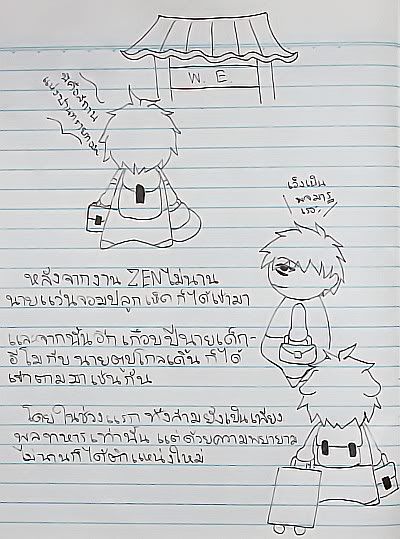 W. E.
นี่คือสถาน
หลังจากงาน ZEN ไม่นาน
นายแว่นจอมปลูกเห็ด ก็ได้เข้ามา
และจากนั้นอีก เกือบปีนายเด็ก-
อีโมกับ นายตบโกลเด้น ก็ได้
เข้าตามมาเช่นกัน
โดยในช่วงแรก ทั้งสามยังเป็นเพียง
พลทหารเท่านั้น แต่ด้วยความพยายาม
ไม่นานก็ได้ตำแหน่งใหม่